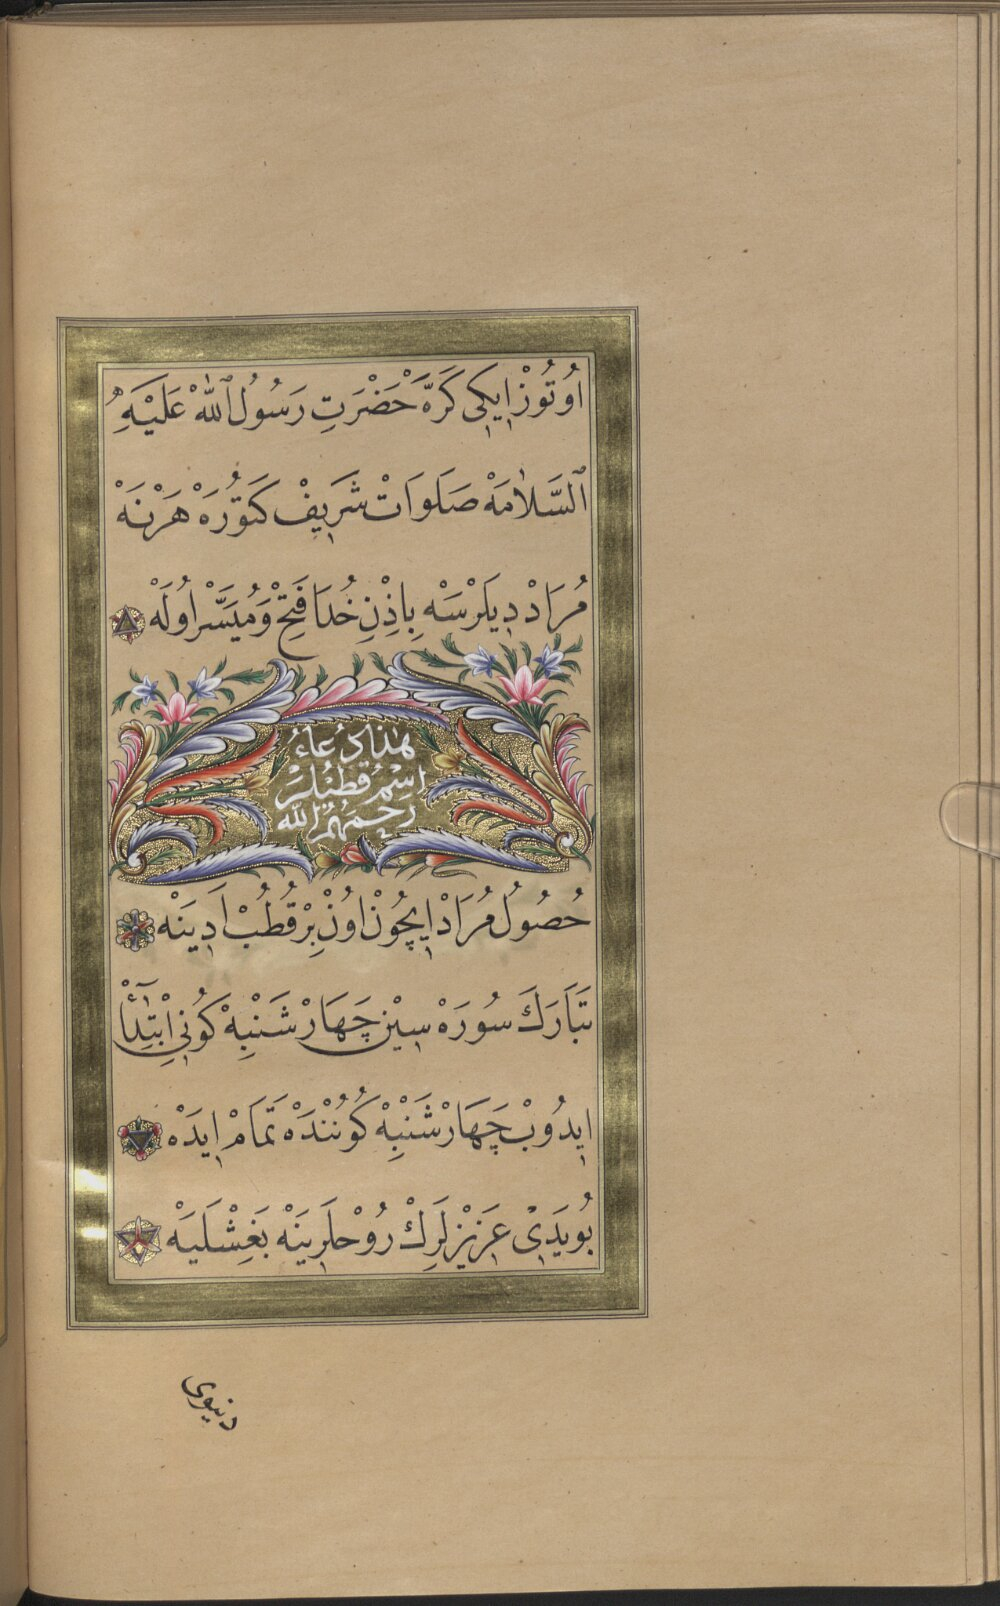 اُوتُوزْ اِيكِى كَرَّهْ حَضْرَتِ رَسُولُ ٱللّٰهْ عَلَيْهِ
ٱلسَّلَامَهْ صَلَوَاتْ شَرِيفْ كَتُورَهْ هَرْنَهْ
مُرَادْ دِيلَرْسَهْ بِاِذْنِ خُدَا فَتِحْ وَمُيَسَّرْ اُولَهْ
هٰذَا دُعَاءُ
اِسْمُ قُطْبُلَرْ
رَحِمَهُمُ اللّٰه
حُصُولُ مُرَادْ اِيچُونْ اُونْ بِرْ قُطُبْ اَدِينَهْ
تَبَارَكَ سُورَهْ سِينِ چَهَارْ شَنْبِهْ كُونِى اِبْتِدَٓأْ
اِيدُوبْ چَهَارْ شَنْبِهْ كُونُنْدَهْ تَمَامْ اِيدَهْ
بُويَدِى عَزِيزْلَرِكْ رُوْحلَرِينَهْ بَغِشْلَيَهْ
دنيوى